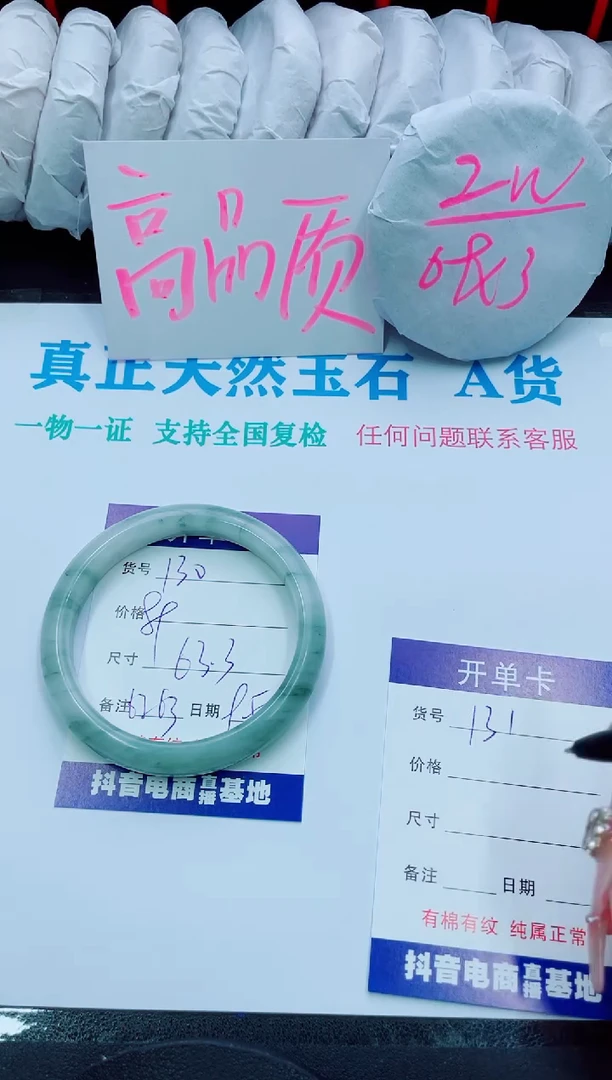 高品质
2W
真正天然玉石 A货
一物一证 支持全国复检 任何问题联系客服
货号 130
价格
尺寸 63.3
备注 日期
抖音电商直播基地
开单卡
货号 131
价格
尺寸
备注 日期
有棉有纹 纯属正常
抖音电商直播基地